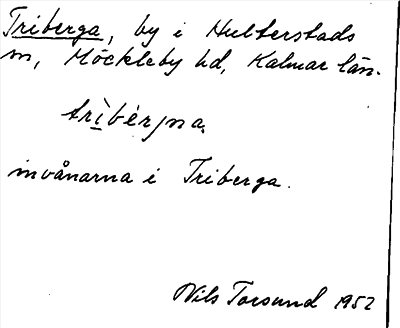 Triberga, by i Hulterstads
sn, Möckleby hd, Kalmar län.
trìbérjna.
invånarna i Triberga.
Nils Torsund 1952